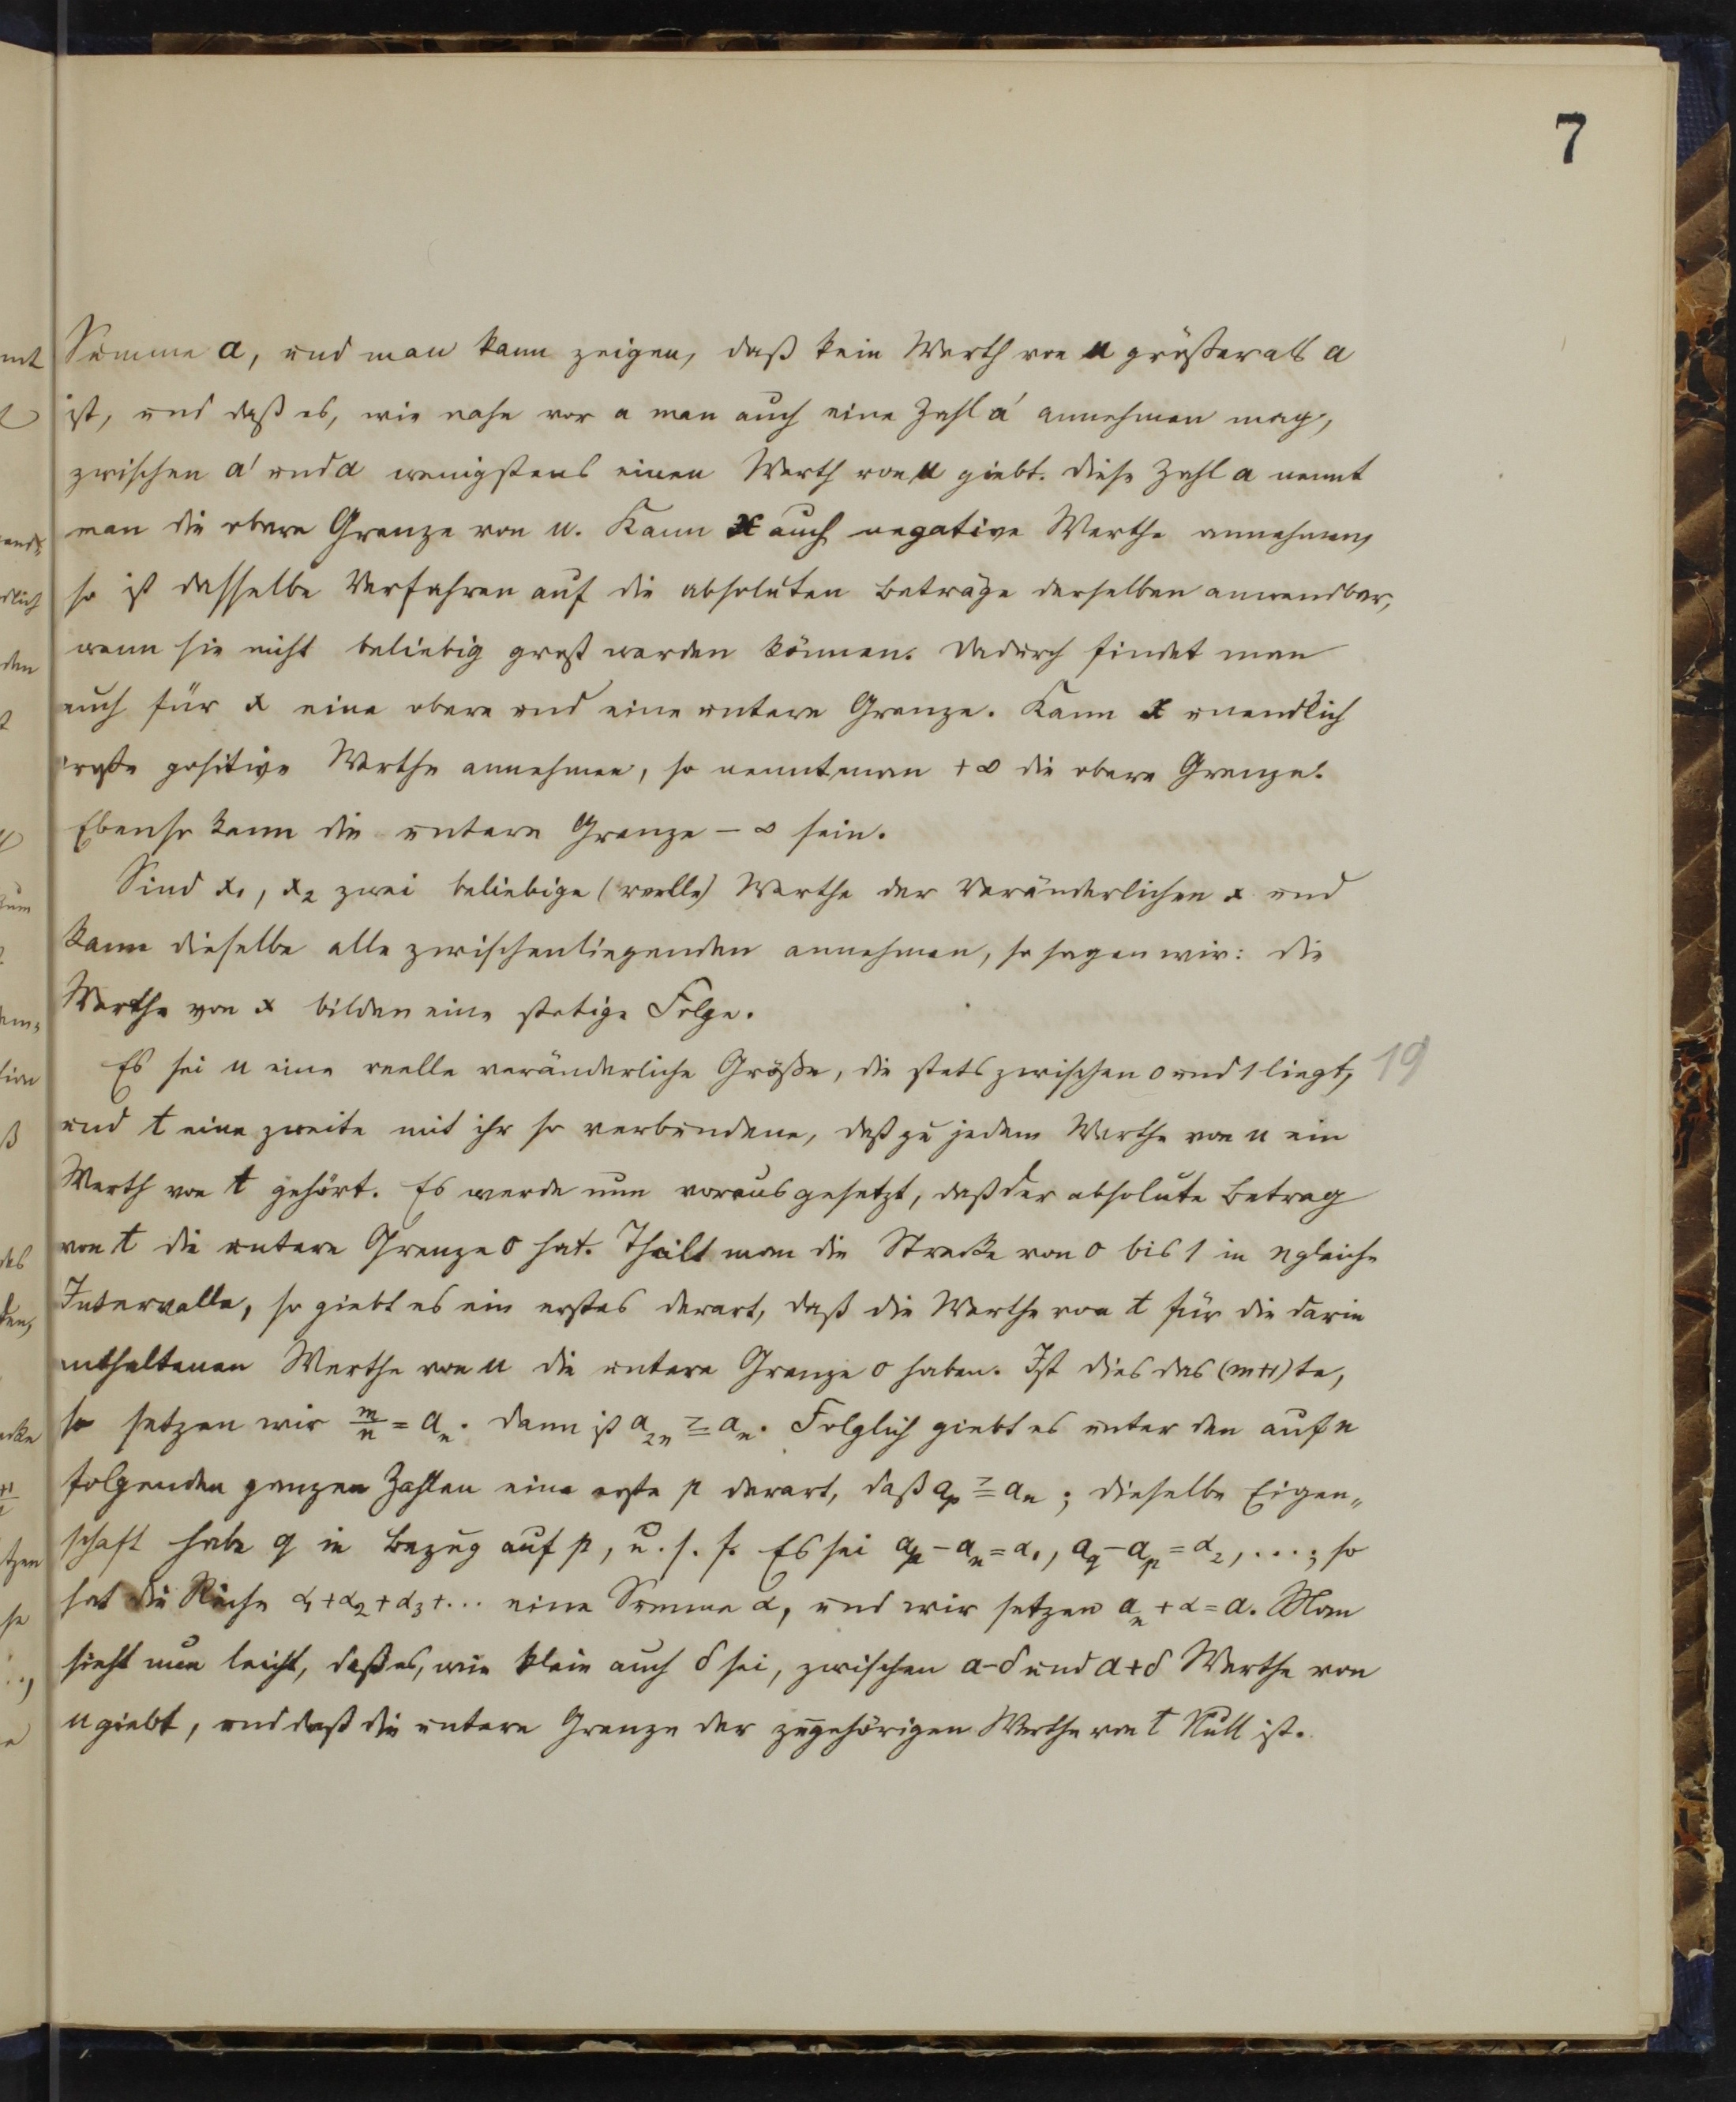 7
Summe a, und man kann zeigen, daß kein Werth von u größer als a
ist, und daß es, wie nahe vor a man auch eine Zahl a' annehmen mag,
zwischen a' und a wenigstens einen Werth von u giebt. Diese Zahl a nennt
man die obere Grenze von u. Kann x auch negative Werthe annehmen,
so ist dasselbe Verfahren auf die absoluten Beträge derselben anwendbar,
wenn sie nicht beliebig groß werden können. Dadurch findet man
auch für x eine obere und eine untere Grenze. Kann x unendlich
große positive Werthe annehmen, so nennt man +∞ die obere Grenze.
Ebenso kann die untere Grenze −∞ sein.
Sind x₁, x₂ zwei beliebige (reelle) Werthe der Veränderlichen x und
kann dieselbe alle zwischenliegenden annehmen, so sagen wir: die
Werthe von x bilden eine stetige Folge.
Es sei u eine reelle veränderliche Größe, die stets zwischen 0 und 1 liegt, 19
und t eine zweite mit ihr so verbundene, daß zu jedem Werthe von u ein
Werth von t gehört. Es werde nun vorausgesetzt, daß der absolute Betrag
von t die untere Grenze 0 hat. Theilt man die Strecke von 0 bis 1 in n gleiche
Intervalle, so giebt es ein erstes derart, daß die Werthe von t für die darin
enthaltenen Werthe von u die untere Grenze 0 haben. Ist dies das (m+1)te,
so setzen wir m/n = aₙ. Dann ist a₂ₙ ≧ aₙ. Folglich giebt es unter den auf n
folgenden ganzen Zahlen eine erste p derart, daß aₚ ≧ aₙ; dieselbe Eigen„
schaft habe q in Bezug auf p, u. s. f. Es sei aₚ − aₙ = α₁, a_q − aₚ = α₂, ....; so
hat die Reihe α₁+α₂+α₃+... eine Summe α, und wir setzen aₙ + α = a. Man
sieht nun leicht, daß es, wie klein auch δ sei, zwischen a−δ und a+δ Werthe von
u giebt, und daß die untere Grenze der zugehörigen Werthe von t Null ist.